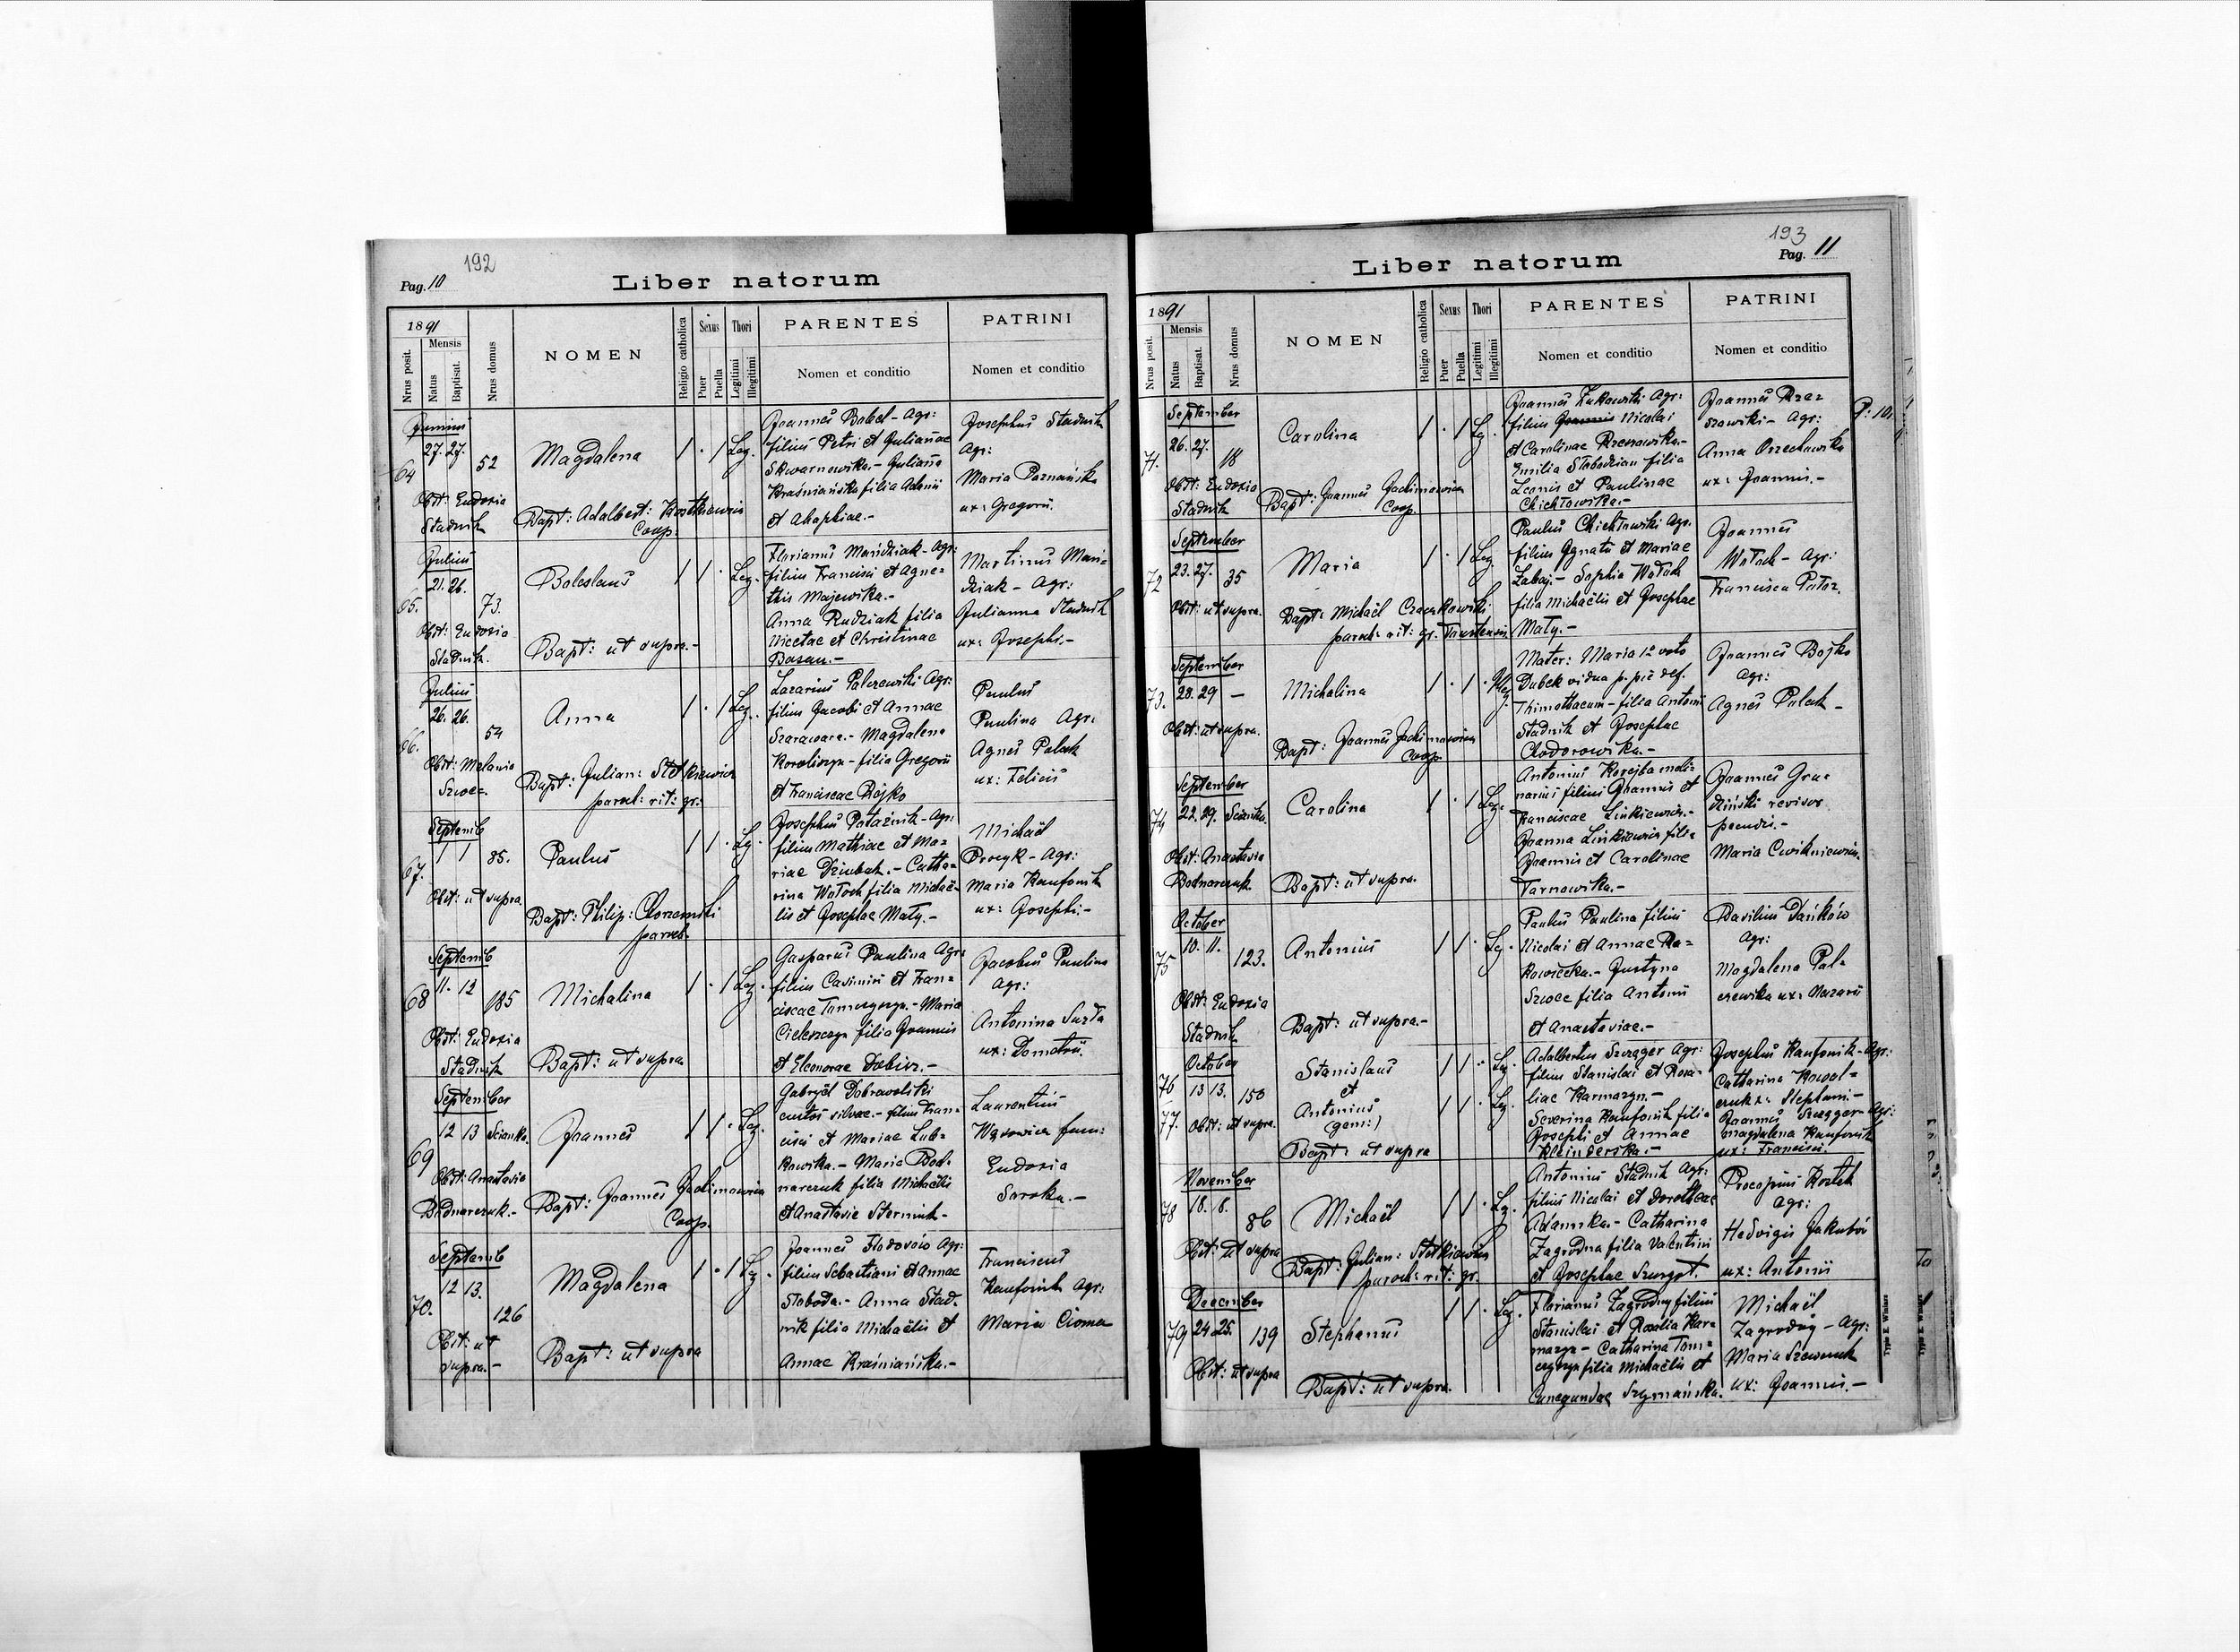 192
Pag. 10
Liber natorum
1891
Nrus posit.
Mensis
Natus
Baptisat.
Nrus domus
NOMEN
Religio catholica
Sexus
Puer
Puella
Thori
Legitimi
Illegitimi
PARENTES
Nomen et conditio
PATRINI
Nomen et conditio
64
Junius
27. 27.
52
Obst: Eudoxia
Stadnik
Magdalena
1 · 1 Leg.
Bapt: Adalbert:
Coop.
Joannes Bobel - Agr:
filius Petri et Julianae
Skwarnowska.- Juliana
Kraśniańska filia Adami
et Ahaphiae.-
Josephus Stadnik
Agr:
Maria Poznańska
ux: Gregorii.
65.
Julius
21. 26.
73.
Obst: Eudoxia
Stadnik.
Boleslaus
1 1 · Leg.
Bapt: ut supra.-
Florianus Mańdziak - Agr:
filius Francisci et Agne=
tis Majewska.-
Anna Rudziak filia
Nicetae et Christinae
Basan.-
Martinus Mań=
dziak - Agr:
Julianna Stadnik
ux: Josephi.-
66.
Julius
26. 26.
54
Obst: Melania
Szwec.
Anna
1 · 1 Leg.
Bapt: Julian: Stetkiewicz
paroch: rit: gr:
Lazarius Palczewski Agr:
filius Jacobi et Annae
Szarawara.- Magdalena
- filia Gregorii
et Franciscae Bojko
Paulus
Paulina Agr:
Agnes Palak
ux: Felicis
67.
Septemb
1 1
85.
Obst: ut supra.
Paulus
1 1 · Leg.
Bapt: Philip: Chorzemski
paroch.
Josephus Potaźnik - Agr:
filius Mathiae et Ma=
riae Dziubak.- Catha=
rina Wołoch filia Michaë=
lis et Josephae Mały.-
Michaël
Procyk - Agr:
Maria Kanfonik
ux: Josephi.-
68
Septemb
11. 12
185
Obst: Eudoxia
Stadnik
Michalina
1 · 1 Leg.
Bapt: ut supra
Gasparus Paulina Agr:
filius Casimiri et Fran=
ciscae Tomczyszyn.- Maria
filia Joannis
et Eleonorae Dobisz.-
Jacobus Paulina
Agr:
Antonina Surła
ux: Demetrii.
69
September
12 13
Scianka.
Obst: Anastasia
Bodnarczuk.-
Joannes
1 1 · Leg.
Bapt: Joannes Jachimowicz
Coop.
Gabryël Dobrowolski
custos silvae.- filius Fran=
cisci et Mariae Lub=
kowska.- Maria Bod=
narczuk filia Michaëlis
et Anastasie Stermich-
Laurentius
Wąsowicz fam:
Eudoxia
Soroka.-
70.
Septemb
12 13.
126
Obst: ut
supra.-
Magdalena
1 · 1 Leg.
Bapt: ut supra
Joannes Hodovów Agr:
filius Sebastiani et Annae
Słoboda.- Anna Stad=
nik filia Michaëlis et
Annae Kraśniańska.-
Franciscus
Kanfonik Agr:
Maria Cioma
193
Pag. 11
Liber natorum
1891
Nrus posit.
Mensis
Natus
Baptisat.
Nrus domus
NOMEN
Religio catholica
Sexus
Puer
Puella
Thori
Legitimi
Illegitimi
PARENTES
Nomen et conditio
PATRINI
Nomen et conditio
71.
September
26. 27.
18
Obst: Eudoxia
Stadnik
Carolina
1 · 1 Leg.
Bapt: Joannes Jachimowicz
Coop.
Joannes Żukowski Agr:
filius Joannis Nicolai
et Carolinae Rzeszowska.-
Emilia Słobodzian filia
Leonis et Paulinae
Chichłowska.-
Joannes Rze=
szowski - Agr:
Anna Orzechowska
ux: Joannis.-
P. 10.
72
September
23. 27.
35
Obst: ut supra.
Maria
1 · 1 Leg
Bapt: Michaël Czaczkowski
paroch: rit: gr: Toustensis.
Paulus Chichłowski Agr.
filius Ignatii et Mariae
Łabaj.- Sophia Wołoch
filia Michaëlis et Josephae
Mały.-
Joannes
Wołoch - Agr:
Francisca Potaz.
73.
September
28. 29
—
Obst: ut supra.
Michalina
1 · 1 · Illeg.
Bapt: Joannes Jachimowicz
Coop.
Mater: Maria 1° voto
Dubek vidua p. piê def.
Thimotheum - filia Antonii
Stadnik et Josephae
Chodorowska.-
Joannes Bojko
Agr:
Agnes Palak -
74
September
22. 29.
Scianka.
Obst: Anastasia
Bodnarczuk.
Carolina
1 · 1 Leg.
Bapt: ut supra.
Antonius Korejba moli=
narius filius Joannis et
Franciscae Linkiewicz.-
Joanna Linkiewicz filia
Joannis et Carolinae
Tarnowska.-
Joannes Gru=
dziński revisor
pecudi.-
Maria Ćwikniewicz.
75
October
10. 11.
123.
Obst: Eudoxia
Stadnik
Antonius
1 1 · Leg.
Bapt: ut supra.-
Paulus Paulina filius
Nicolai et Annae Ra=
kowiecka.- Justyna
Szwec filia Antonii
et Anastasiae.-
Basilius Dańków
Agr:
Magdalena Pal=
czewska ux: Nazarii
76
77.
October
13 13.
150
Obst: ut supra.
Stanislaus
et
Antonius
(gem:)
1 1 · Leg.
1 1 · Leg.
Bapt: ut supra
Adalbertus Szwager Agr:
filius Stanislai et Rosa=
liae Karmazyn.-
Severina Kanfonik filia
Josephi et Annae
Kleinderska.-
Josephus Kanfonik - Agr:
Catharina Kowal=
czuk ux: Stephani.-
Joannes Szwager - Agr:
Magdalena Kanfonik
ux: Francisci.
78
November
18. 18.
86
Obst: ut supra
Michaël
1 1 · Leg.
Bapt: Julian: Stetkiewicz
paroch: rit: gr.
Antonius Stadnik Agr:
filius Nicolai et Dorotheae
Adamska.- Catharina
Zagrodna filia Valentini
et Josephae Szurgot.
Procopius Kostek
Agr:
Hedvigis Jakubów
ux: Antonii
79
December
24 25.
139
Obst: ut supra
Stephanus
1 1 · Leg.
Bapt: ut supra.
Florianus Zagrodny filius
Stanislai et Rosalia Kar=
mazyn - Catharina Tom=
czyszyn filia Michaëlis et
Cunegundae Szymańska.
Michaël
Zagrodny - Agr:
Maria Szewczuk
ux: Joannis.-